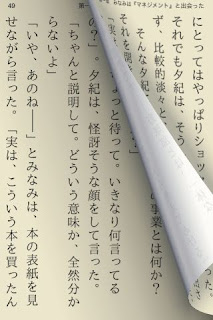 49
みなみは『マネジメント』と出会った
にとってはやっぱりショッ
それでも夕紀は、そう
ず、比較的淡々と
そんな夕
それを聞
の事業とは何か?
ょっと待って。いきなり何言ってる
の?」。夕紀は、怪訝そうな顔をして言った。
「ちゃんと説明して。どういう意味か、全然分か
らないよ」
「いや、あのね――」とみなみは、本の表紙を見
せながら言った。「実は、こういう本を買ったん